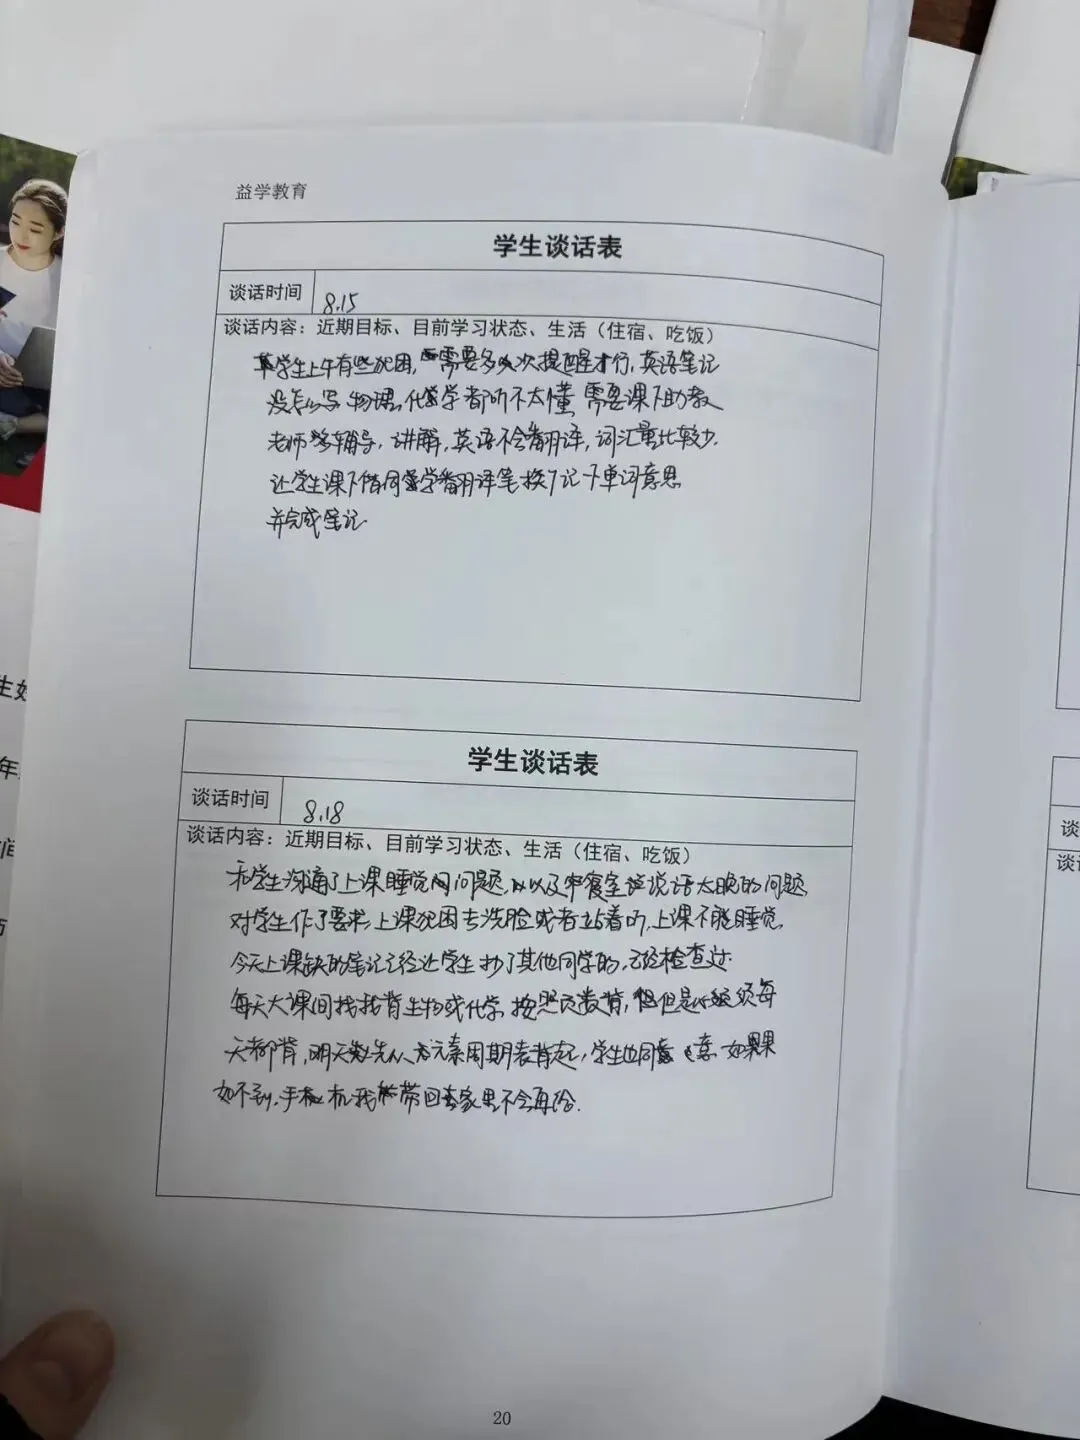 益学教育
学生谈话表
谈话时间 8.15
谈话内容：近期目标、目前学习状态、生活（住宿、吃饭）
学生上午有些犯困，需要多次提醒才行，英语笔记
没怎么写 物理、化学都听不太懂 需要课下助教
老师多辅导，讲解，英语不会翻译，词汇量比较少.
让学生课下借同学翻译笔按下记一下单词意思
并完成笔记
学生谈话表
谈话时间 8.18
谈话内容：近期目标、目前学习状态、生活（住宿、吃饭）
和学生沟通了上课睡觉问题，以及寝室说话太晚的问题
对学生作了要求，上课犯困去洗脸或者站着听，上课不能睡觉.
今天上课缺的笔记已经让学生抄了其他同学的，已经检查过.
每天大课间找我背生物或化学，按照页数背，但是必须每
天都背，明天先从元素周期表背起，学生也同意 如果
如不到，手机我带回家里不会再给.
20
生
年
间
谈
谈话